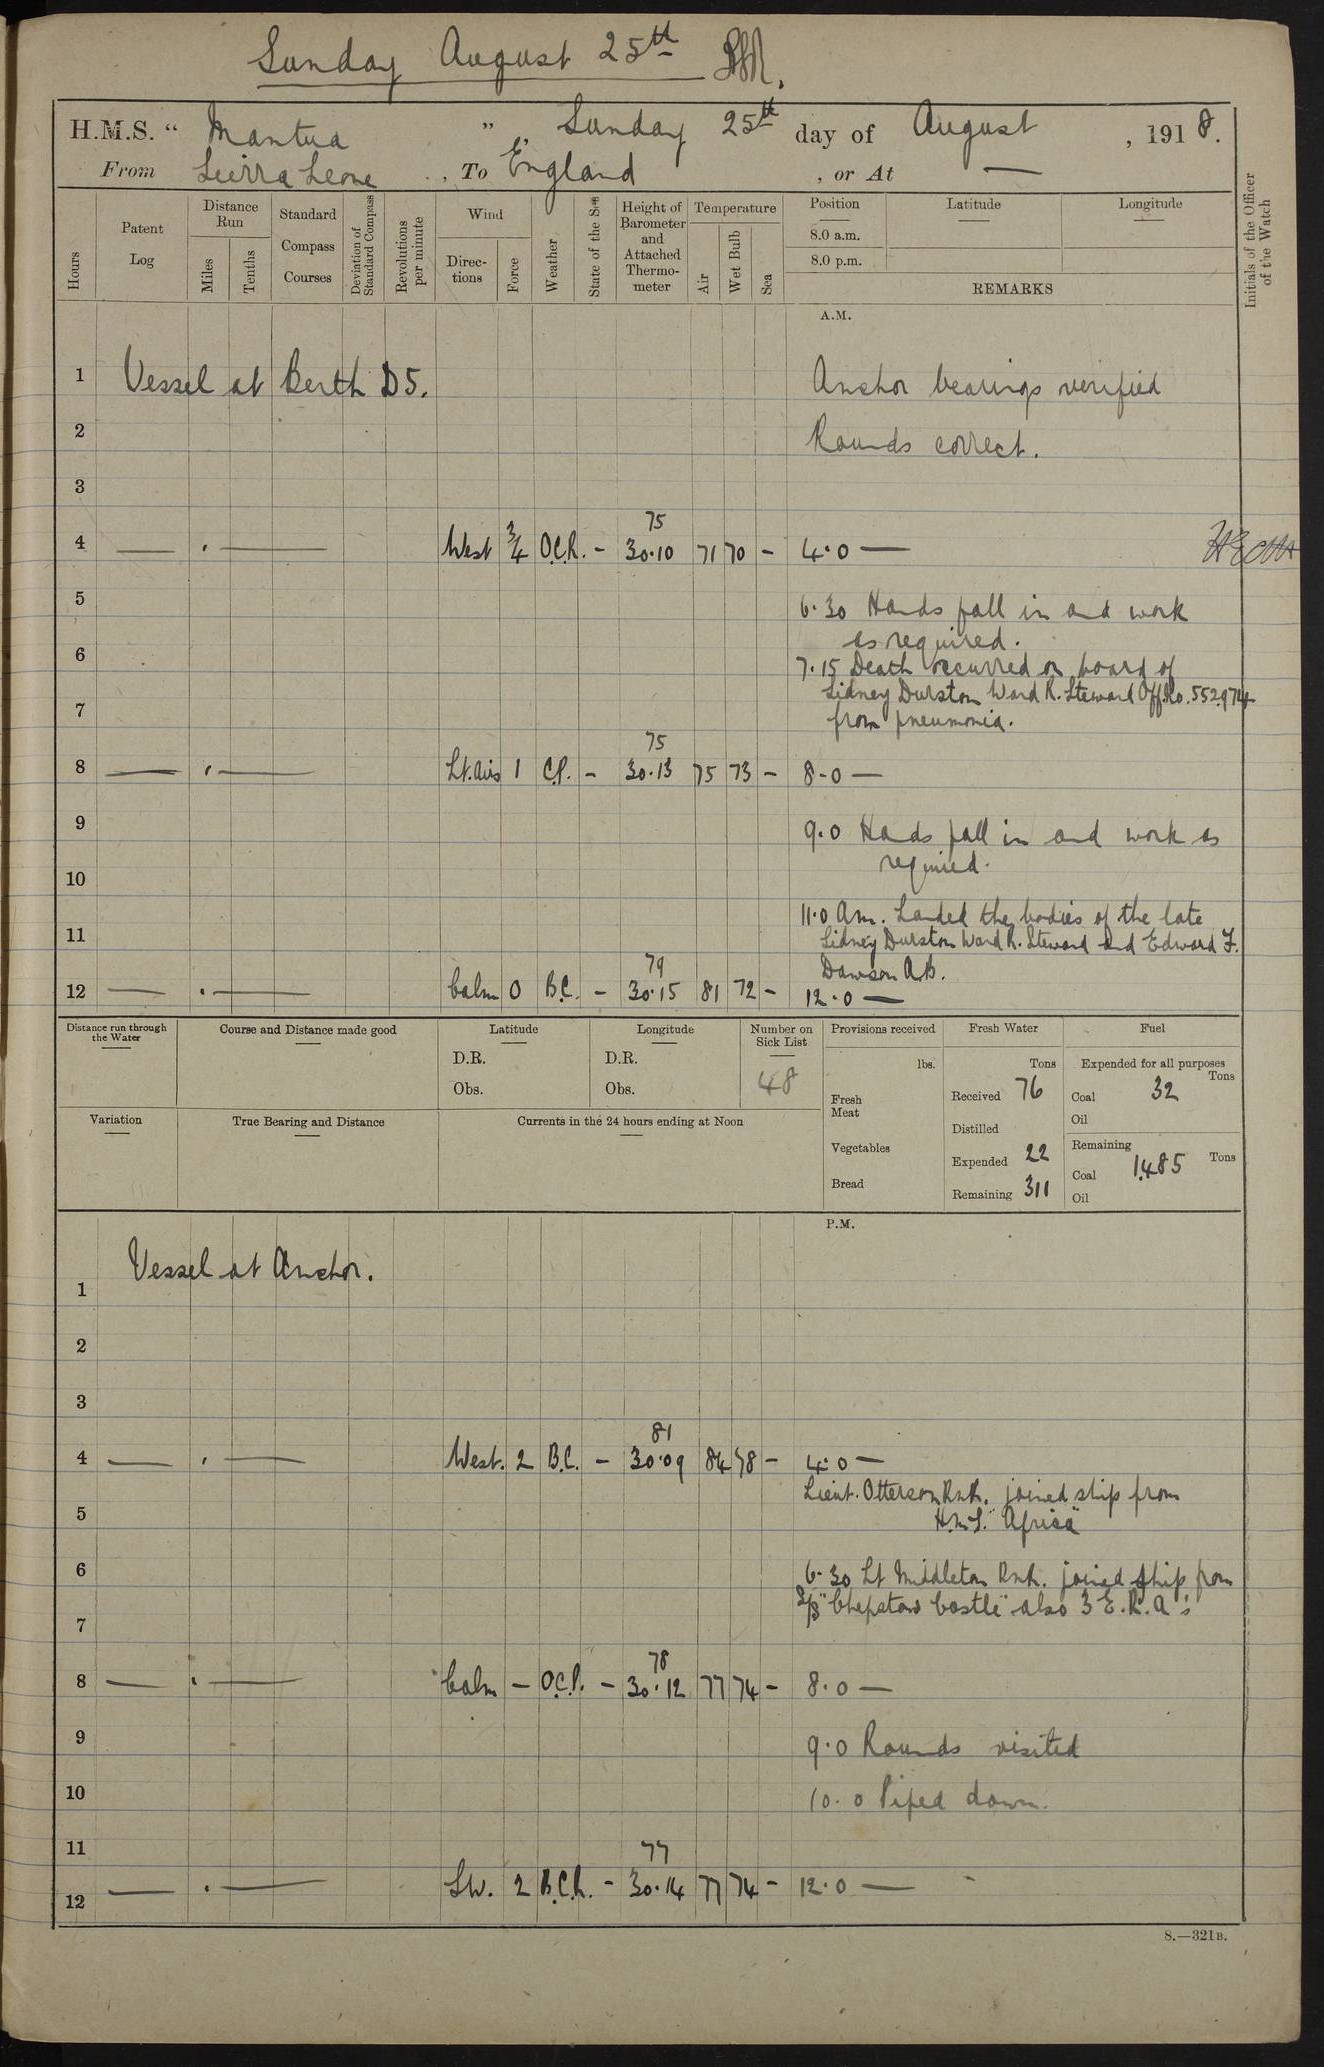 Sunday August 25th
H.M.S. “ Mantua ” , Sunday 25th day of August , 1918.
From Sierra Leone , To England , or At —
Hours
Patent Log
Distance Run
Miles
Tenths
Standard Compass Courses
Deviation of Standard Compass
Revolutions per minute
Wind
Directions
Force
Weather
State of the Sea
Height of Barometer and Attached Thermometer
Temperature
Air
Wet Bulb
Sea
Position
8.0 a.m.
8.0 p.m.
Latitude
Longitude
REMARKS
Initials of the Officer of the Watch
A.M.
1 Vessel at Berth D5. Anchor bearings verified
2 Rounds correct.
3
75
4 — . — West 3/4 O.C.R. - 30.10 71 70 - 4.0 —
5 6.30 Hands fall in and work
as required.
6 7.15 Death occurred on board of
Sidney Durston Ward R. Steward Off. No. 552974
7 from pneumonia.
75
8 — . — Lt. airs 1 C.P. - 30.13 75 73 - 8.0 —
9 9.0 Hands fall in and work as
required.
10
11.0 Am. Landed the bodies of the late
11 Sidney Durston Ward R. Steward and Edward F.
79 Dawson A.B.
12 — . — Calm 0 B.C. - 30.15 81 72 - 12.0 —
Distance run through the Water
Course and Distance made good
Latitude
D.R.
Obs.
Longitude
D.R.
Obs.
Number on Sick List
48
Variation
True Bearing and Distance
Currents in the 24 hours ending at Noon
Provisions received
lbs.
Fresh Meat
Vegetables
Bread
Fresh Water
Tons
Received 76
Distilled
Expended 22
Remaining 311
Fuel
Expended for all purposes
Tons
Coal 32
Oil
Remaining
Coal 1485 Tons
Oil
P.M.
Vessel at Anchor.
1
2
3
81
4 — . — West. 2 B.C. - 30.09 84 78 - 4.0 —
Lieut. Otterson R.N.R. joined ship from
5 H.M.S. "Africa"
6 6.30 Lt Middleton R.N.R. joined ship from
S/S "Chepstow Castle" also 3 E.R.A's
7
78
8 — . — Calm — O.C.P. - 30.12 77 74 - 8.0 —
9 9.0 Rounds visited
10 10.0 Piped down.
11
77
12 — . — SW. 2 B.C.L. - 30.14 77 74 - 12.0 —
8.—321B.